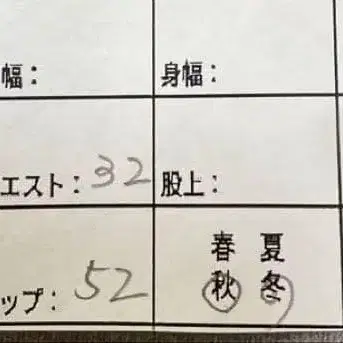 幅： 身幅：
エスト：32 股上：
春 夏
ップ：52 秋 冬